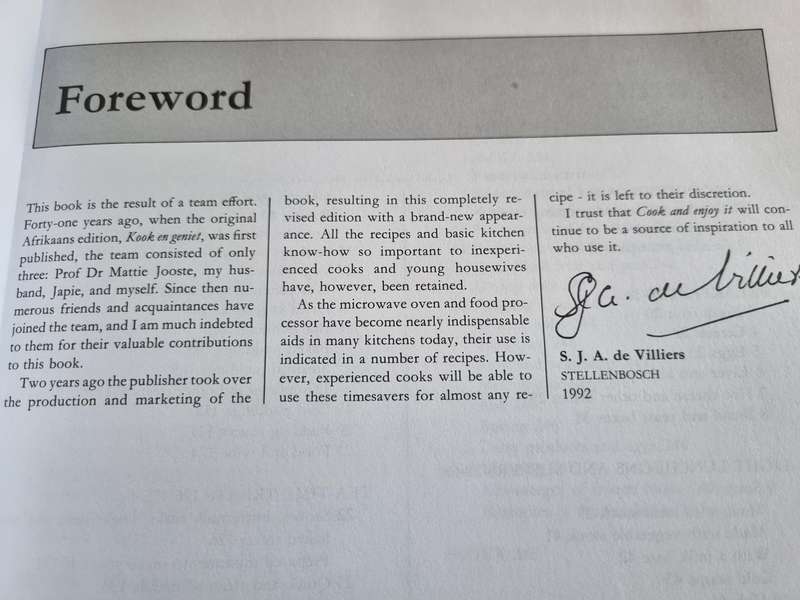 Foreword
This book is the result of a team effort.
Forty-one years ago, when the original
Afrikaans edition, Kook en geniet, was first
published, the team consisted of only
three: Prof Dr Mattie Jooste, my hus-
band, Japie, and myself. Since then nu-
merous friends and acquaintances have
joined the team, and I am much indebted
to them for their valuable contributions
to this book.
Two years ago the publisher took over
the production and marketing of the
book, resulting in this completely re-
vised edition with a brand-new appear-
ance. All the recipes and basic kitchen
know-how so important to inexperi-
enced cooks and young housewives
have, however, been retained.
As the microwave oven and food pro-
cessor have become nearly indispensable
aids in many kitchens today, their use is
indicated in a number of recipes. How-
ever, experienced cooks will be able to
use these timesavers for almost any re-
cipe - it is left to their discretion.
I trust that Cook and enjoy it will con-
tinue to be a source of inspiration to all
who use it.
SJA. de Villiers
S. J. A. de Villiers
STELLENBOSCH
1992